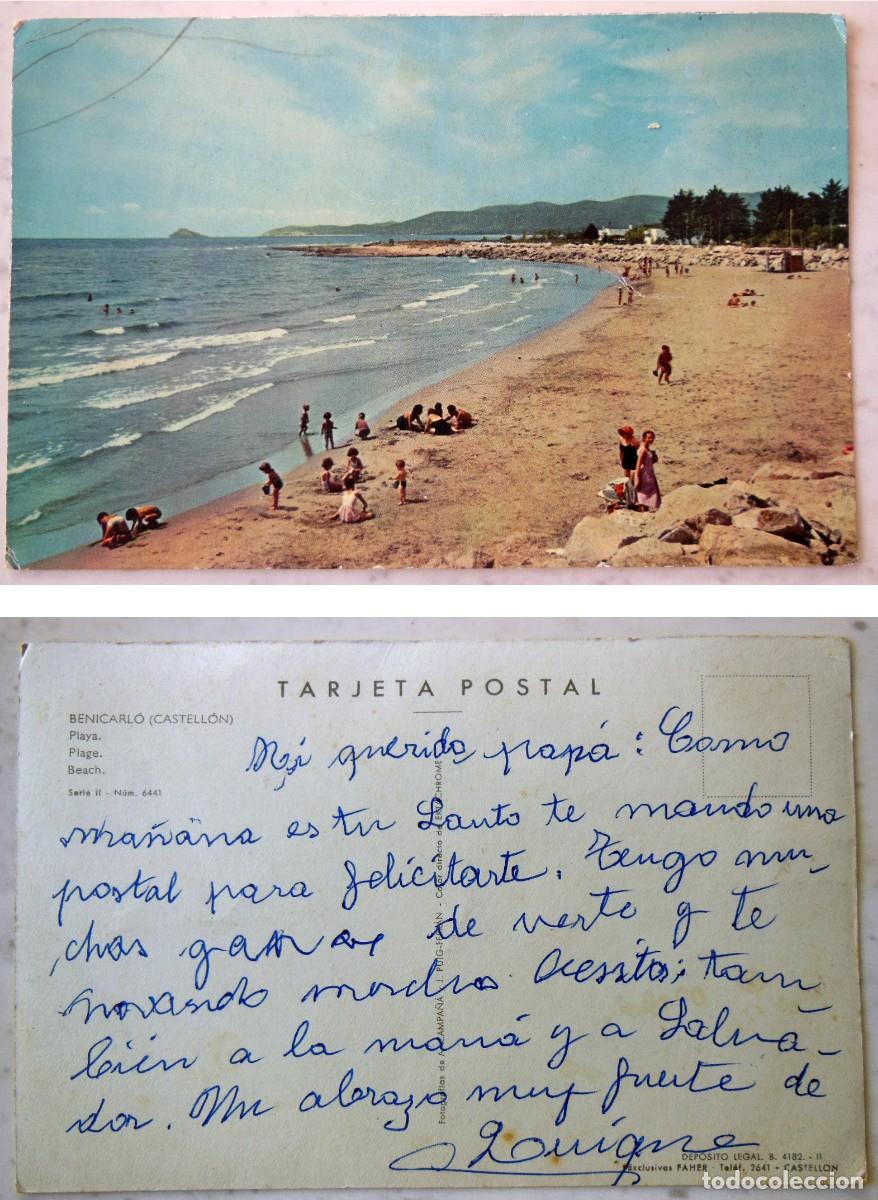 TARJETA POSTAL
BENICARLÓ (CASTELLÓN)
Playa.
Plage.
Beach.
Serie II - Núm. 6441
Mi querido papá: Como
mañana es tu Santo te mando una
postal para felicitarte. Tengo mu-
chas ganas de verte y te
mando muchos besitos; tam
bién a la mamá y a Salva-
dor. Un abrazo muy fuerte de
Quique
Fotografías de A. CAMPAÑÁ y J. PUIG-FERRÁN - Color directo de EKTACHROME
DEPÓSITO LEGAL. B. 4182. - II
Exclusivas FAHER - Teléf. 2641 - CASTELLON
todocoleccion